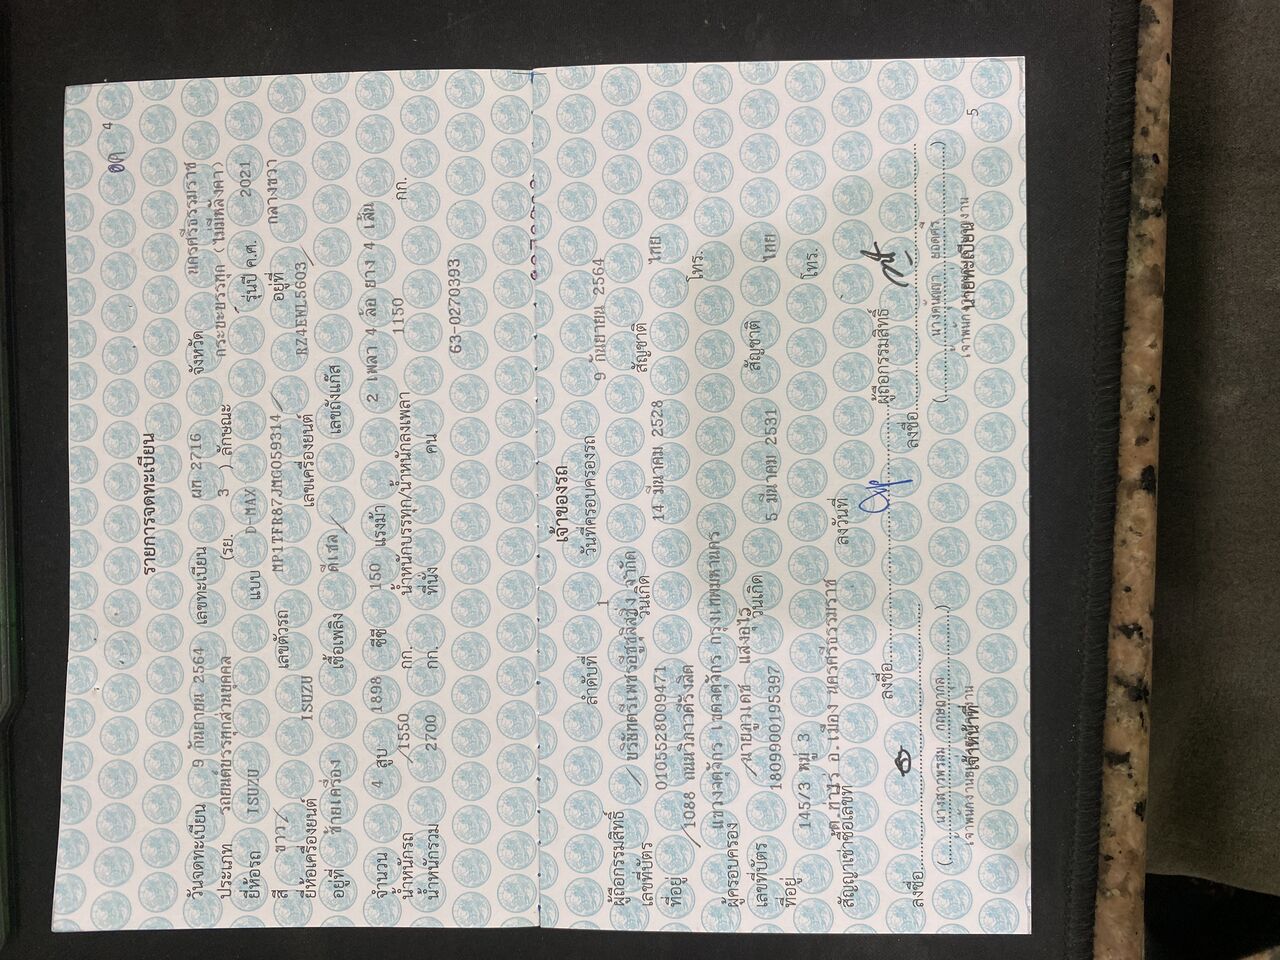 4
รายการจดทะเบียน
วันจดทะเบียน 9 กันยายน 2564 เลขทะเบียน ผก 2716 จังหวัด นครศรีธรรมราช
ประเภท รถยนต์บรรทุกส่วนบุคคล (รย. 3 ) ลักษณะ กระบะบรรทุก (ไม่มีหลังคา)
ยี่ห้อรถ ISUZU แบบ D-MAX รุ่นปี ค.ศ. 2021
สี ขาว เลขตัวรถ MP1TFR87JMG059314 อยู่ที่ กลางขวา
ยี่ห้อเครื่องยนต์ ISUZU เลขเครื่องยนต์ RZ4EWL5603
อยู่ที่ ซ้ายเครื่อง เชื้อเพลิง ดีเซล เลขถังแก๊ส
จำนวน 4 สูบ 1898 ซีซี 150 แรงม้า 2 เพลา 4 ล้อ ยาง 4 เส้น
น้ำหนักรถ 1550 กก. น้ำหนักบรรทุก/น้ำหนักลงเพลา 1150 กก.
น้ำหนักรวม 2700 กก. ที่นั่ง คน
63-0270393
เจ้าของรถ
ลำดับที่ 1 วันที่ครอบครองรถ 9 กันยายน 2564
ผู้ถือกรรมสิทธิ์ บริษัทตรีเพชรอีซูซุลิสซิ่ง จำกัด
เลขที่บัตร 0105528009471 วันเกิด 14 มีนาคม 2528 สัญชาติ ไทย
ที่อยู่ 1088 ถนนวิภาวดีรังสิต
แขวงจตุจักร เขตจตุจักร กรุงเทพมหานคร โทร.
ผู้ครอบครอง นายภูวเดช แสงอุไร
เลขที่บัตร 1809900195397 วันเกิด 5 มีนาคม 2531 สัญชาติ ไทย
ที่อยู่ 145/3 หมู่ 3
ต.ท่าไร่ อ.เมือง นครศรีธรรมราช โทร.
สัญญาเช่าซื้อเลขที่ ลงวันที่
ลงชื่อ ผู้ถือกรรมสิทธิ์
ลงชื่อ ลงชื่อ
เจ้าหน้าที่ นายทะเบียน
5